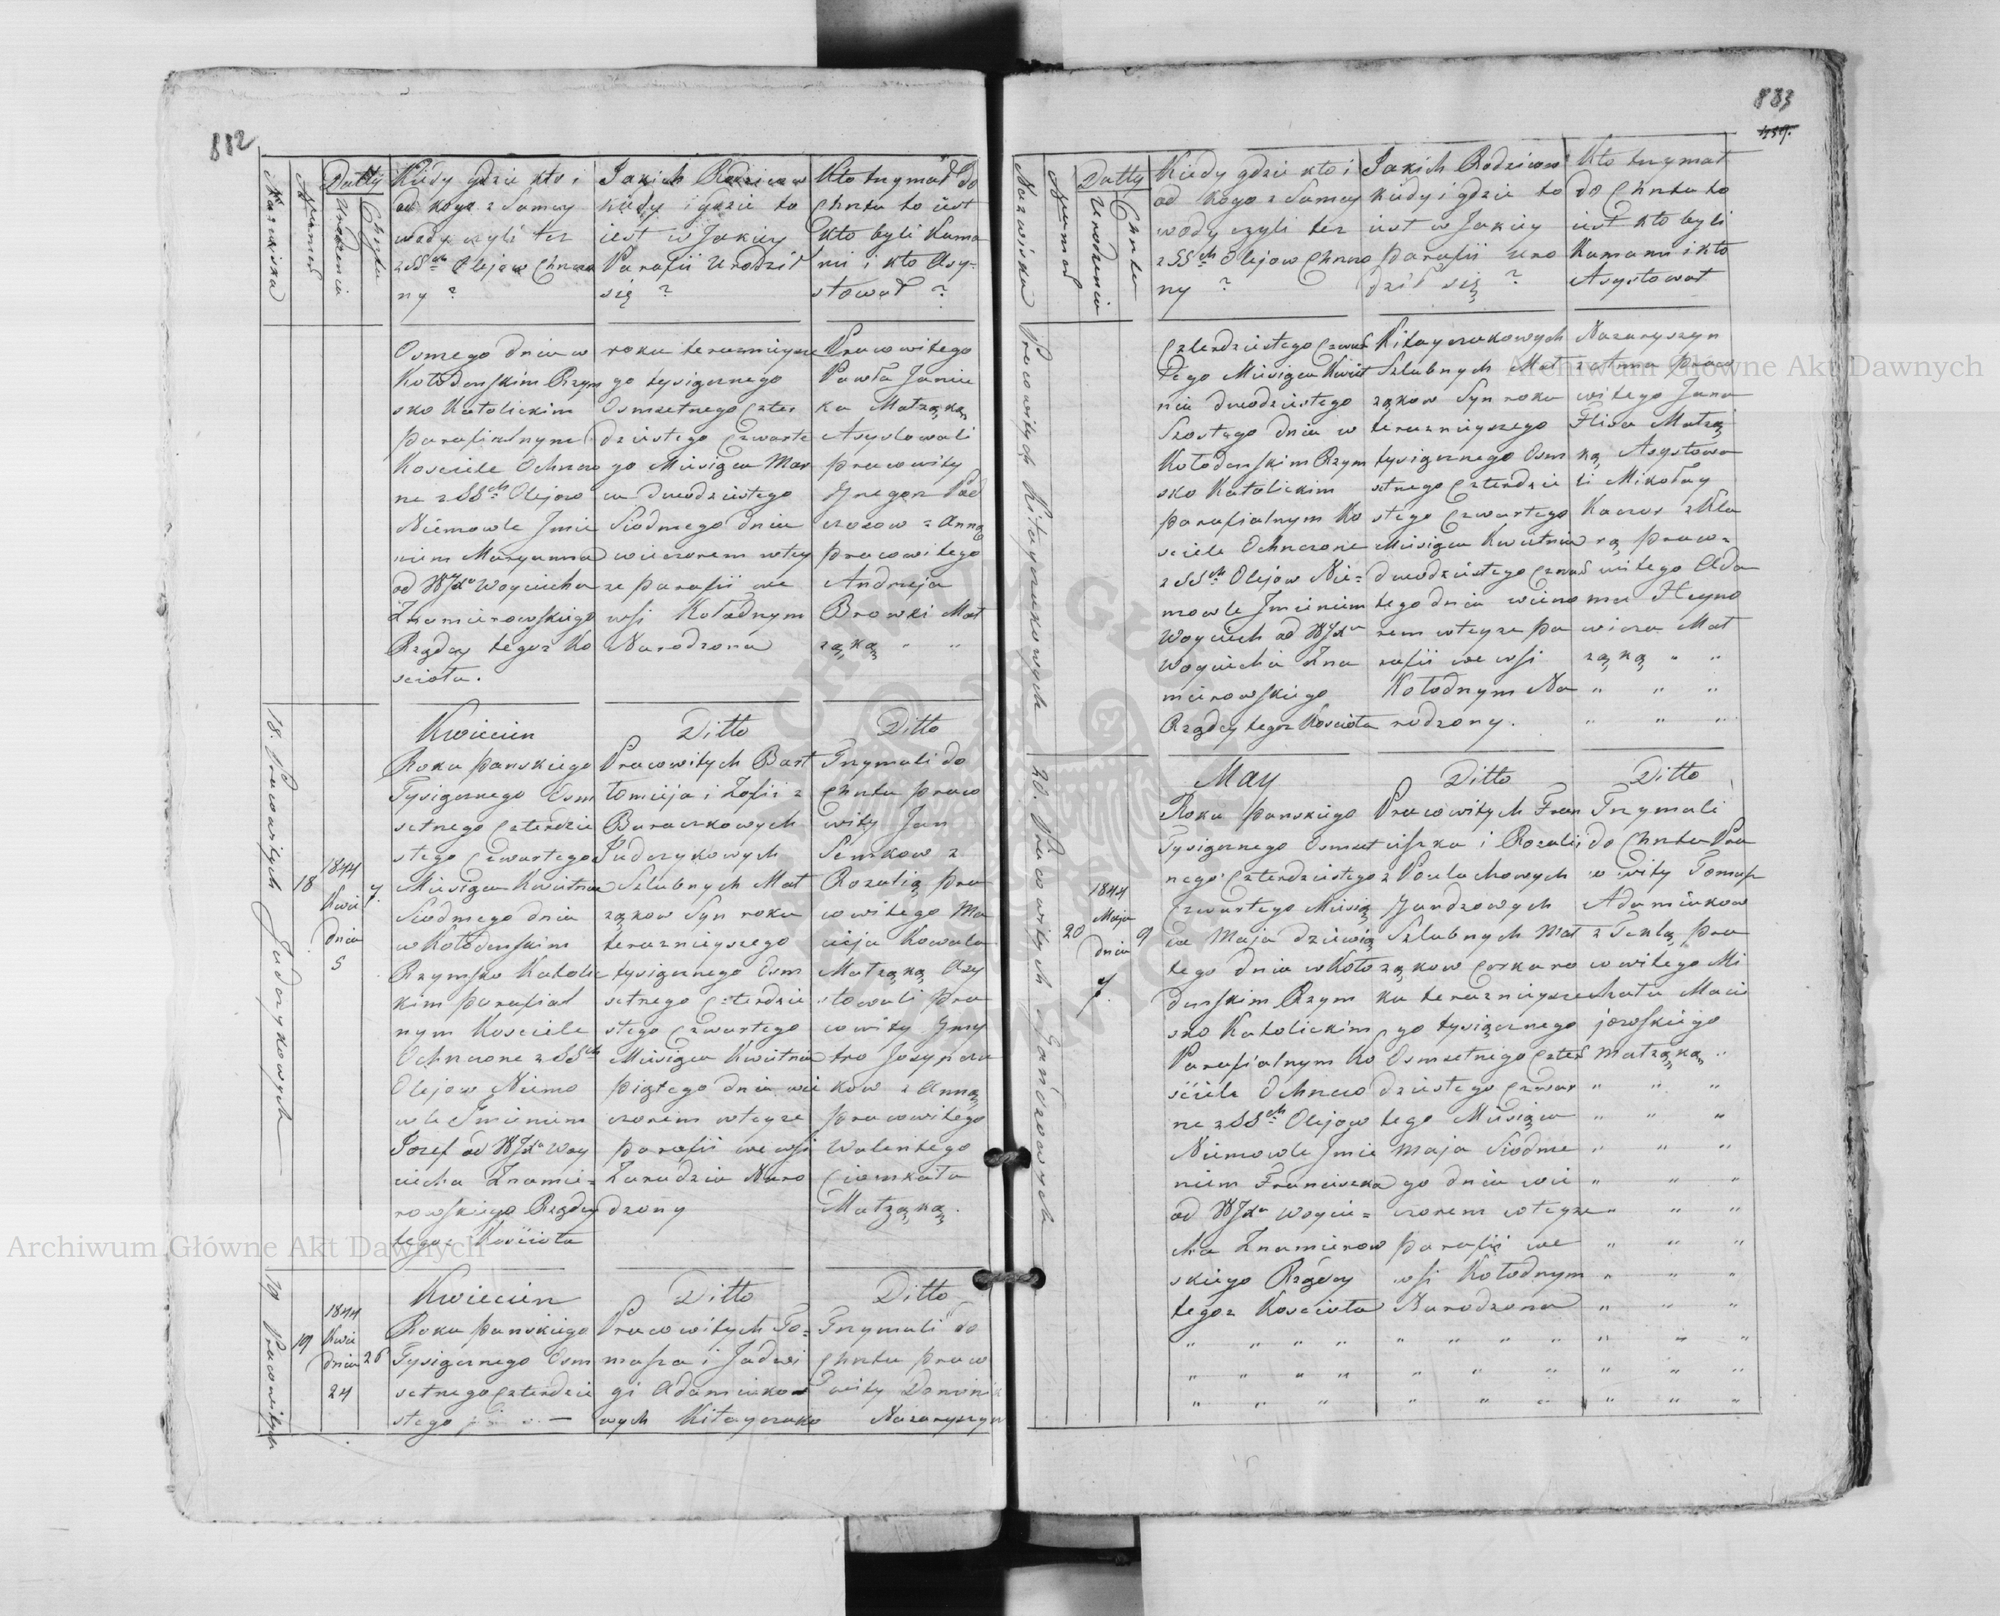 882
Nazwiska
Numer
Datty
Urodzenia
Chrztu
Kiedy gdzie kto i
od kogo z Samey
wody czyli też
z SSch Olejow Chrzczo
ny ?
Jakich Rodzicow
kiedy i gdzie to
iest w Jakiey
Parafii Urodził
się ?
Kto trzymał do
Chrztu to iest
kto byli Kuma
mi i kto Asy=
stował ?
Osmego dnia w
Kołodenskim Rzym
sko Katolickim
parafialnym
Kosciele Ochrzczo
ne z SSch Olejow
Niemowle Jmie
niem Maryanna
od WJXa Woyciecha
Znamierowskiego
Rządcy tegoz Ko
scioła.
roku teraznieysze
go tysiącznego
Osmsetnego Czter
dziestego Czwarte
go Miesiąca Mar
ca dwudziestego
Siodmego dnia
wieczorem wtey
ze parafii we
wsi Kołodnym
Narodzona
Pracowitego
Pawła Janiu
ka Małząką
Asystowali
pracowity
Grzegorz Pod
czosow z Anną
pracowitego
Andrzeja
Browki Mał
ząką " "
18. Pracowitych Judczykowych
18
1844
Kwie
dnia
5
7.
Kwiecien
Roku panskiego
Tysiącznego Osm
setnego Czterdzie
stego Czwartego
Miesiąca Kwietnia
Siodmego dnia
w Kołodenskim
Rzymsko Katolic
kim parafial
nym Kosciele
Ochrzczone z SSch
Olejow Niemo
wle Jmieniem
Jozef od WJXa Woy
ciecha Znamie=
rowskiego Rządcy
tegoz Kościoła
Ditto
Pracowitych Bart
łomieja i Zofii z
Buraczkowych
Judczykowych
Szlubnych Mał
ząkow Syn roku
teraznieyszego
tysiącznego Osm
setnego Czterdzie
stego Czwartego
Miesiąca Kwietnia
piątego dnia wie
czorem wteyze
parafii we wsi
Zarudziu Naro
dzony
Ditto
Trzymali do
Chrztu praco
wity Jan
Semkow z
Rozalią pra
cowitego Ma
cieja Kowala
Małząką Asy
stowali pra
cowity Dmy
tro Josypczu
kow z Anną
pracowitego
Walentego
Ciomkała
Małząką.
19 Pracowitych
19
1844
Kwie
dnia
24
26
Kwiecien
Roku panskiego
Tysiącznego Osm
setnego Czterdzie
stego
Ditto
Pracowitych To=
masza i Jadwi
gi Adamiukow
wych Kitayczuko
Ditto
Trzymali do
Chrztu praco
wity Dominik
Nazaryszyn
883
Nazwiska
Numer
Datty
Urodzenia
Chrztu
Kiedy gdzie kto i
od kogo z Samey
wody czyli tez
z SSch Olejow Chrzczo
ny ?
Jakich Rodzicow
kiedy i gdzie to
iest w Jakiey
parafii Uro
dził się ?
Kto trzymał
do Chrztu to
iest kto byli
Kumami i kto
Asystował
Pracowitych Kitayczukowych
Czterdziestego Czwar
tego Miesiąca Kwiet
nia dwudziestego
Szostego dnia w
Kołodenskim Rzym
sko Katolickim
parafialnym Ko
sciele Ochrzczone
z SSch Olejow Nie=
mowle Jmieniem
Woyciech od WJXa
Woyciecha Zna
mierowskiego
Rządcy tegoz Koscioła
Kitayczukowych
Szlubnych Mał
ząkow Syn roku
teraznieyszego
tysiącznego Osm
setnego Czterdzie
stego Czwartego
Miesiąca Kwietnia
dwudziestego Czwar
tego dnia wieczo
rem wteyze pa
rafii we wsi
Kołodnym Na
rodzony.
Nazaryszyn
z Anna praco
witego Jana
Flisa Małzą
ką Asystowa
li Mikołay
Kaczor z Kla
rą praco=
witego Ada
ma Hayno
wicza Mał
ząką " "
" " "
" " "
20. Pracowitych Janczowych
20
1844
Maja
dnia
7.
9
May
Roku panskiego
Tysiącznego Osmset
nego Czterdziestego
Czwartego Miesią
ca Maja dziewią
tego dnia w Koło
denskim Rzym
sko Katolickim
Parafialnym Ko
ściele Ochrzczo
ne z SSch Olejow
Niemowle Jmie
niem Franciszka
od WJXa Woycie=
cha Znamierow
skiego Rządcy
tegoz Koscioła
" " " "
" " " "
" " "
Ditto
Pracowitych Fran
ciszka i Rozalii
z Paulachowych
Szlubnych Mał
ząkow Corka ro
ku teraznieysze
go tysiącznego
Osmsetnego Czter
dziestego Czwar
tego Miesiąca
Maja Siodme
go dnia wie
czorem wteyze
parafii we
wsi Kołodnym
Narodzona
" " " "
" " "
" " "
Ditto
Trzymali
do Chrztu Pra
cowity Tomasz
Adamiukow
z Teklą pra
cowitego Mi
chała Macie
jowskiego
Małząką "
" " "
" " "
" " "
" " "
" " "
" " "
" " "
" " "
" " "
" " "
" " "
Archiwum Główne Akt Dawnych
Archiwum Główne Akt Dawnych